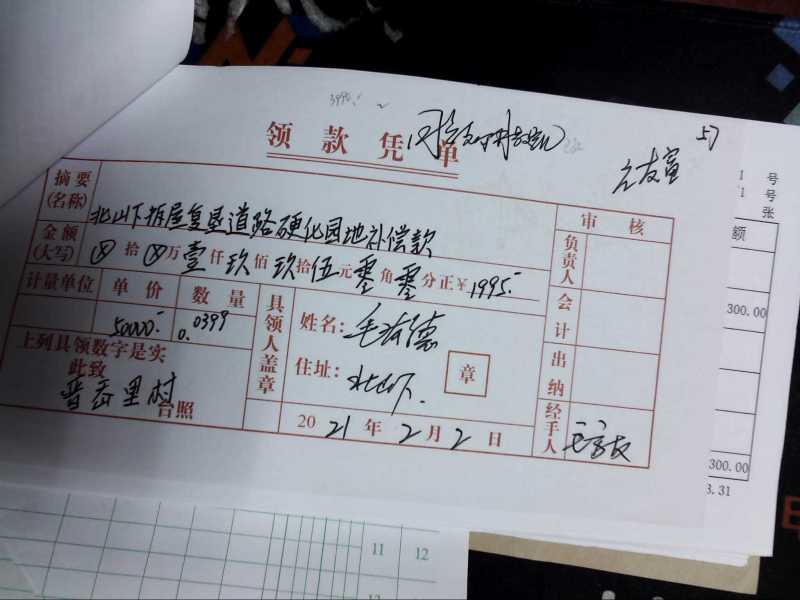 3995.-
领款凭单
57
摘要
(名称)
北山下拆屋复垦道路硬化园地补偿款
审核
金额
(大写)
⊗拾⊗万壹仟玖佰玖拾伍元零角零分正¥1995.-
负责人
计量单位
单价
数量
50000.-
0.0399
会计
具领人盖章
姓名:
住址:北山下.
章
出纳
上列具领数字是实
此致
村
台照
2021年2月2日
经手人
号
号
张
额
300.00
300.00
3.31
11
12